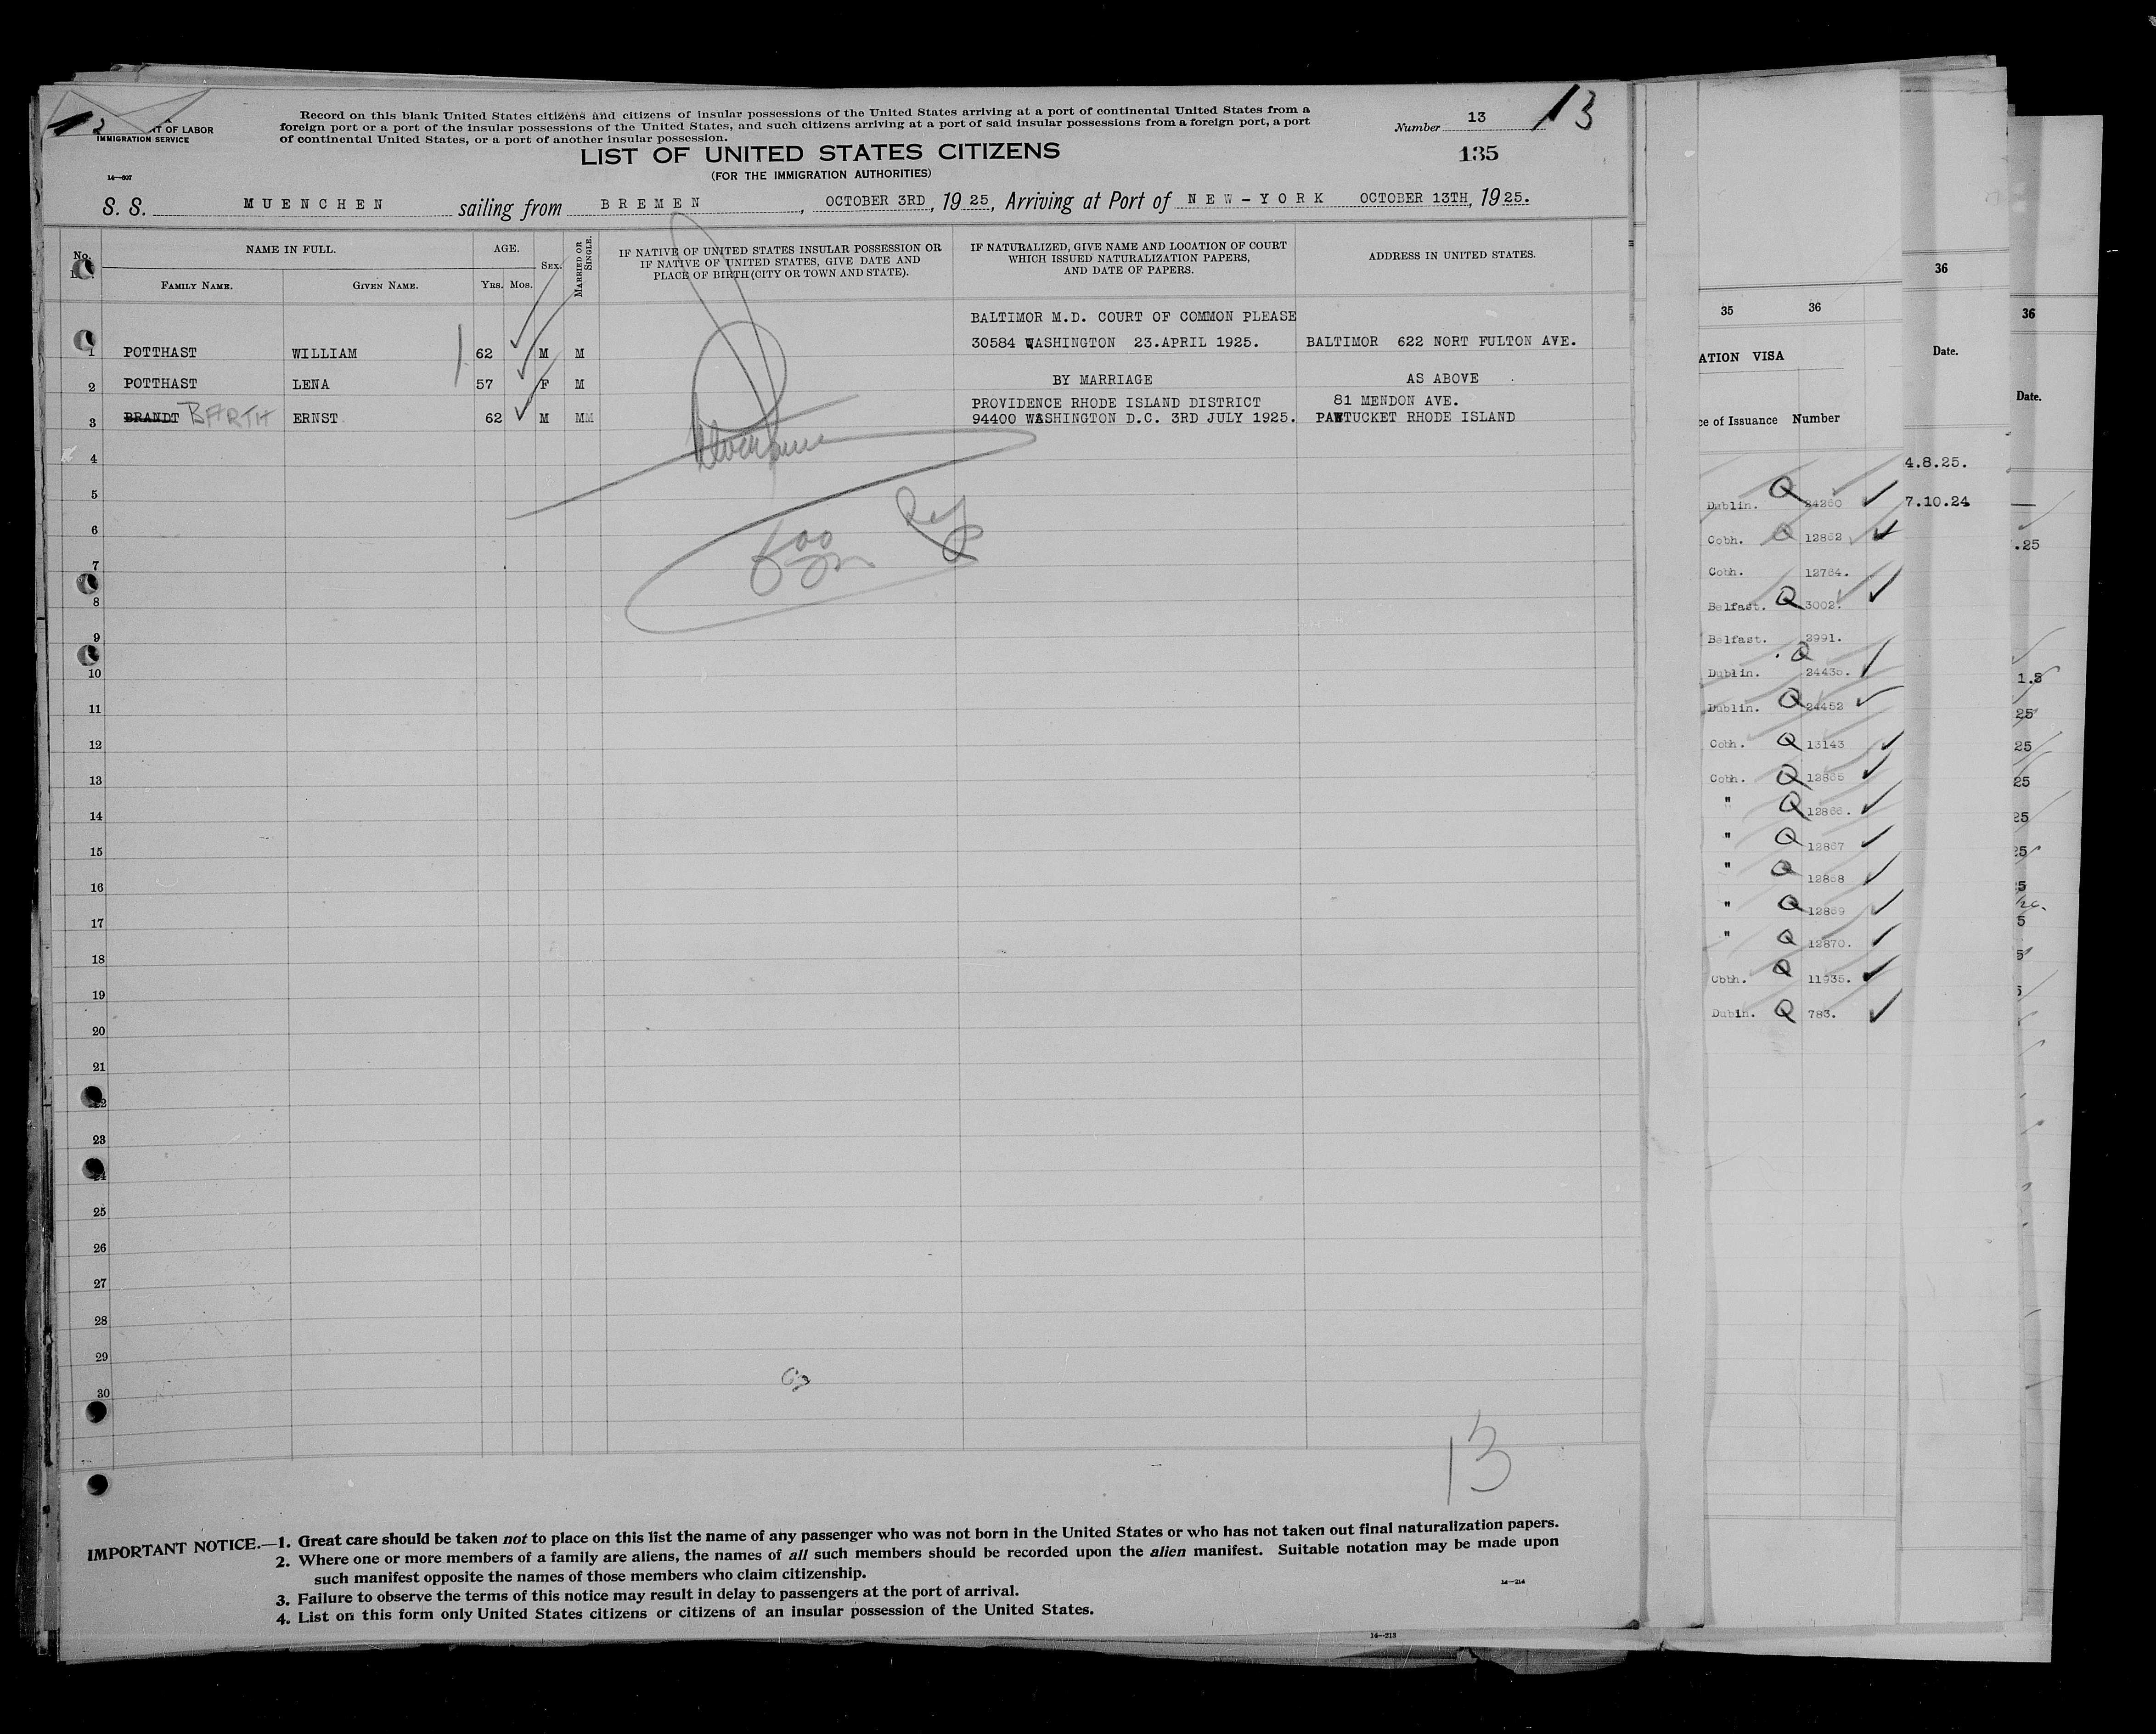 Record on this blank United States citizens and citizens of insular possessions of the United States arriving at a port of continental United States from a
foreign port or a port of the insular possessions of the United States, and such citizens arriving at a port of said insular possessions from a foreign port, a port
of continental United States, or a port of another insular possession.
T OF LABOR
IMMIGRATION SERVICE
14—607
Number 13 13
LIST OF UNITED STATES CITIZENS
135
(FOR THE IMMIGRATION AUTHORITIES)
S. S. MUENCHEN sailing from BREMEN, OCTOBER 3RD, 1925, Arriving at Port of NEW-YORK OCTOBER 13TH, 1925.
No. NAME IN FULL. AGE. SEX. MARRIED OR SINGLE.
FAMILY NAME. GIVEN NAME. YRS. MOS.
IF NATIVE OF UNITED STATES INSULAR POSSESSION OR
IF NATIVE OF UNITED STATES, GIVE DATE AND
PLACE OF BIRTH (CITY OR TOWN AND STATE).
IF NATURALIZED, GIVE NAME AND LOCATION OF COURT
WHICH ISSUED NATURALIZATION PAPERS,
AND DATE OF PAPERS.
ADDRESS IN UNITED STATES.
BALTIMOR M.D. COURT OF COMMON PLEASE
1 POTTHAST WILLIAM 62 M M 30584 WASHINGTON 23.APRIL 1925. BALTIMOR 622 NORT FULTON AVE.
2 POTTHAST LENA 57 F M BY MARRIAGE AS ABOVE
PROVIDENCE RHODE ISLAND DISTRICT 81 MENDON AVE.
3 BRANDT BARTH ERNST 62 M MM 94400 WASHINGTON D.C. 3RD JULY 1925. PAWTUCKET RHODE ISLAND
4
5
6
7
8
9
10
11
12
13
14
15
16
17
18
19
20
21
22
23
24
25
26
27
28
29
30
13
IMPORTANT NOTICE.—1. Great care should be taken not to place on this list the name of any passenger who was not born in the United States or who has not taken out final naturalization papers.
2. Where one or more members of a family are aliens, the names of all such members should be recorded upon the alien manifest. Suitable notation may be made upon
such manifest opposite the names of those members who claim citizenship.
3. Failure to observe the terms of this notice may result in delay to passengers at the port of arrival.
4. List on this form only United States citizens or citizens of an insular possession of the United States.
14—214
14—213
35 36
ATION VISA
ce of Issuance Number
Dublin. Q 24260
Cobh. Q 12862
Cobh. 12764.
Belfast. Q 3002.
Belfast. 2991.
Dublin. Q 24435.
Dublin. Q 24452
Cobh. Q 13143
Cobh. Q 12865
" Q 12866.
" Q 12867
" Q 12868
" Q 12869
" Q 12870.
Cobh. Q 11935.
Dubin. Q 783.
36
Date.
4.8.25.
7.10.24
36
Date.
.25
25
25
25
25